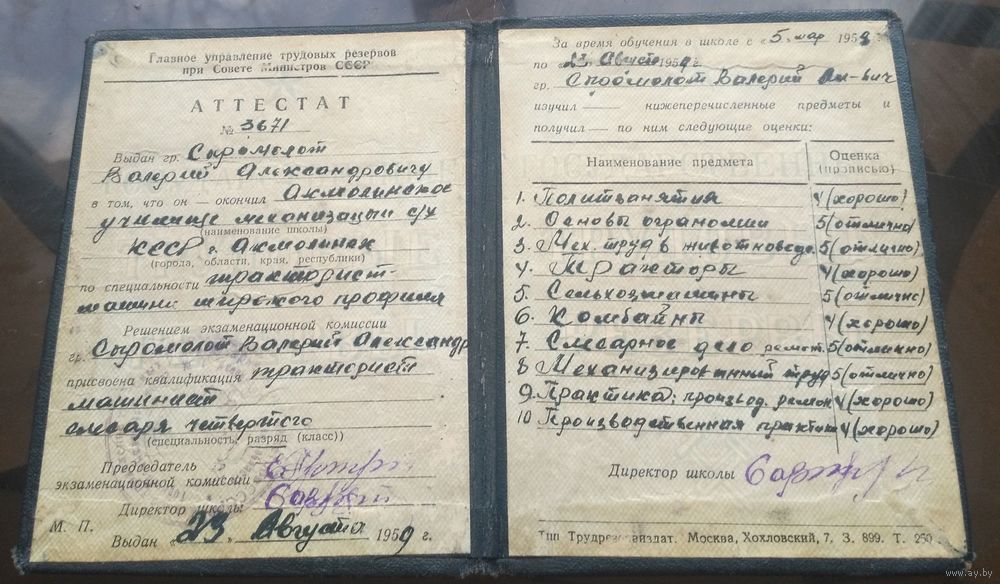 Главное управление трудовых резервов
при Совете Министров СССР
АТТЕСТАТ
№ 3671
Выдан гр. Сыромолот
Валерий Александровичу
в том, что он — окончил Акмолинское
училище механизации с/х
(наименование школы)
КССР г. Акмолинск
(города, области, края, республики)
по специальности тракторист-
машинист широкого профиля
Решением экзаменационной комиссии
гр. Сыромолот Валерий Александр
присвоена квалификация тракторист
машинист
слесаря четвертого
(специальность, разряд (класс))
Председатель
экзаменационной комиссии
Директор школы
М. П.
Выдан „23„ Августа 1959 г.
За время обучения в школе с „5„ мар 1959
по „23„ Август 1959 г.
гр. Сыромолот Валерий Ал-вич
изучил — нижеперечисленные предметы и
получил — по ним следующие оценки:
Наименование предмета
Оценка
(прописью)
1. Политзанятия 4 (хорошо)
2. Основы аграномии 5 (отлично)
3. Мех. труд в животновод. 5 (отлично)
4. Тракторы 4 (хорошо)
5. Сельхозмашины 5 (отлично)
6. Комбайны 4 (хорошо)
7. Слесарное дело ремот. 5 (отлично)
8 Механизированный труд 5 (отлично)
9. Практика: производ. ремон 4 (хорошо)
10 Производственная практик 4 (хорошо)
Директор школы
Тип Трудрезервиздат. Москва, Хохловский, 7. З. 899. Т. 250
www.ay.by